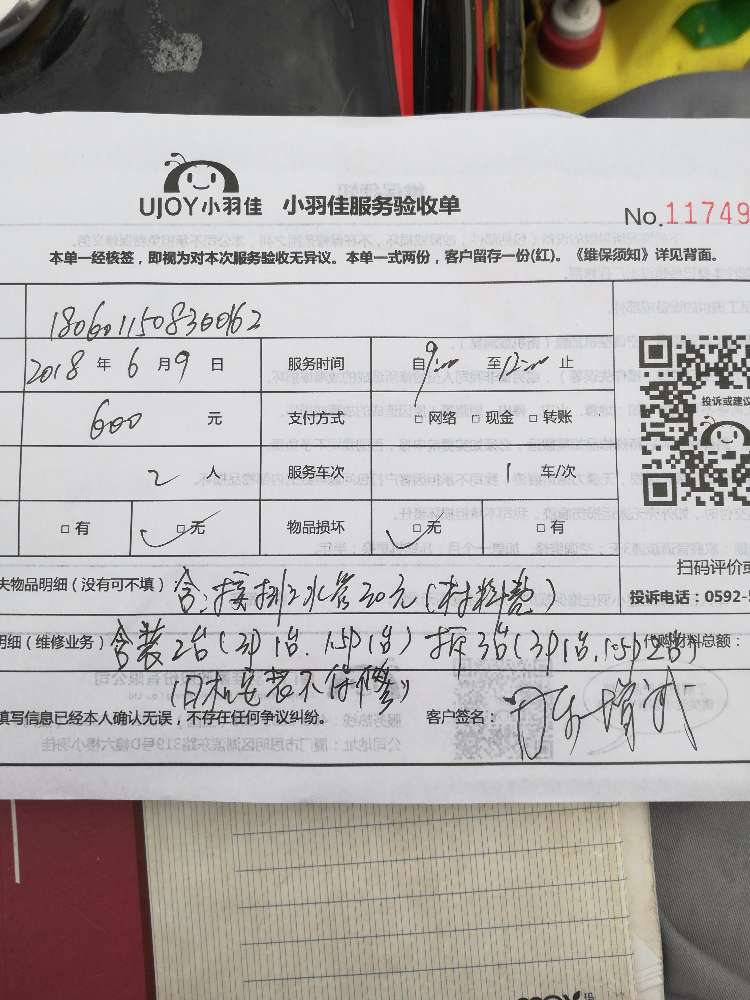 UJOY小羽佳 小羽佳服务验收单
No.11749
本单一经核签，即视为对本次服务验收无异议。本单一式两份，客户留存一份(红)。《维保须知》详见背面。
180601150830062
2018 年 6 月 9 日 服务时间 自 9:00 至 12:00 止
600 元 支付方式 □ 网络 □ 现金 □ 转账
投诉或建议
2 人 服务车次 1 车/次
□ 有 □ 无 物品损坏 □ 无 □ 有
扫码评价或
失物品明细（没有可不填） 含：接排水管30元（材料费）
投诉电话：0592-5
明细（维修业务） 含装2台（3P1台、1.5P1台） 拆3台（3P1台，1.5P2台） 代购材料总额：
（旧机安装不保修）
填写信息已经本人确认无误，不存在任何争议纠纷。 客户签名：